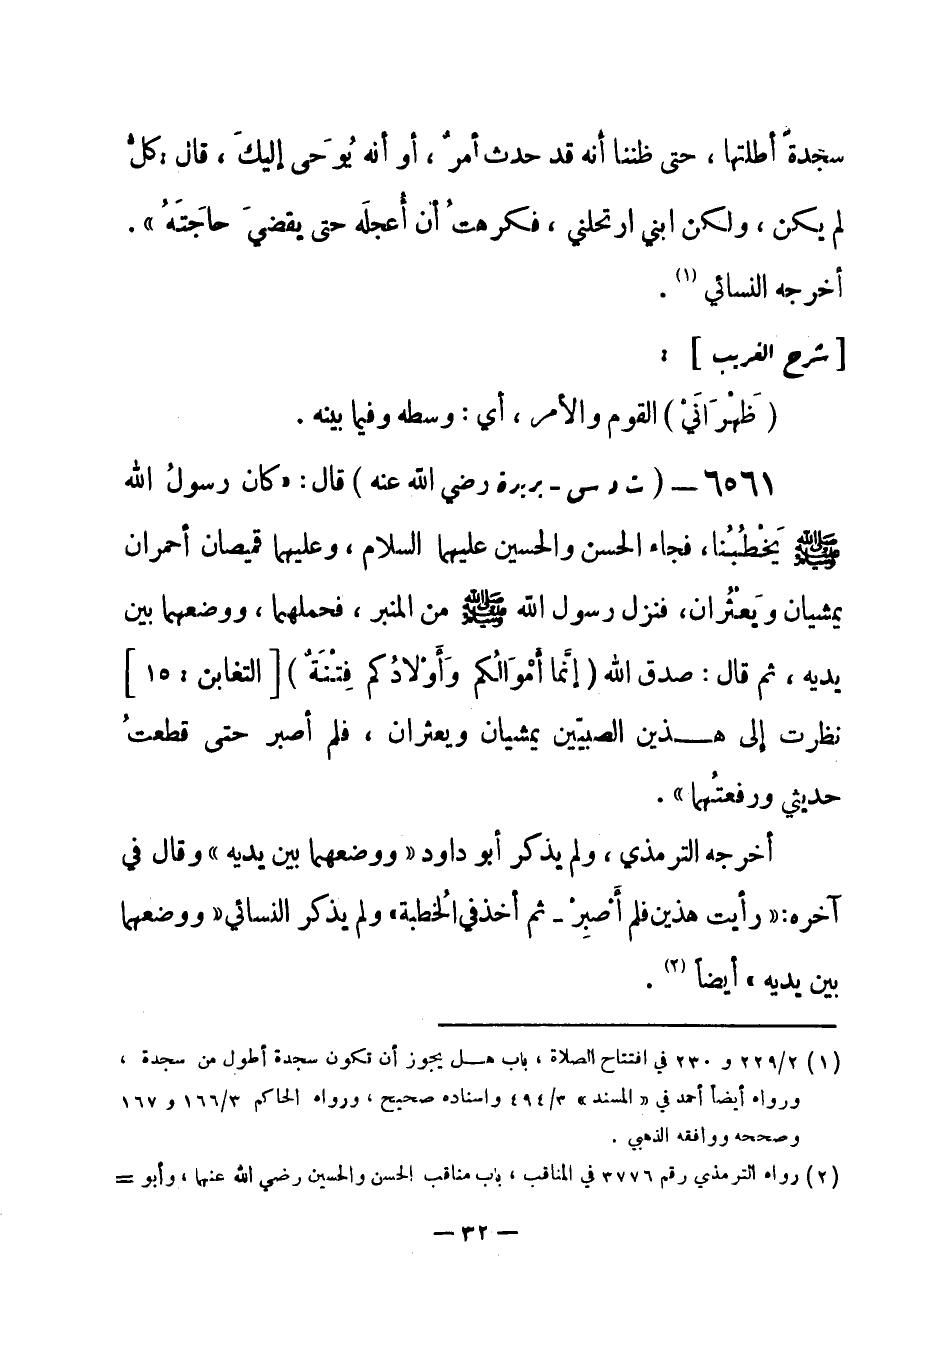 سجدةً أطلتها ، حتى ظننا أنه قد حدث أمرٌ ، أو أنه يُوحَى إليكَ ، قال : كلُّ
لم يكن ، ولكن ابني ارتحلني ، فكرهتُ أن أُعجلَه حتى يقضيَ حاجَتَهُ » .
أخرجه النسائي (١) .
[ شرح الغريب ] :
( ظَهْرَانَيْ ) القوم والأمر ، أي : وسطه وفيما بينه .
٦٥٦١ — ( ت د س - بريدة رضي الله عنه ) قال : « كان رسولُ الله
ﷺ يَخْطُبُنا ، فجاء الحسن والحسين عليهما السلام ، وعليهما قميصان أحمران
يمشيان ويَعْثُران ، فنزل رسول الله ﷺ من المنبر ، فحملهما ، ووضعهما بين
يديه ، ثم قال : صدق الله ( إنَّما أمْوَالُكم وَأَوْلادُكم فِتْنَةٌ ) [ التغابن : ١٥ ]
نظرت إلى هـذين الصبيّين يمشيان ويعثران ، فلم أصبر حتى قطعتُ
حديثي ورفعتُهما » .
أخرجه الترمذي ، ولم يذكر أبو داود « ووضعهما بين يديه » وقال في
آخره : « رأيت هذين فلم أَصْبِرْ - ثم أخذ في الخُطبة » ولم يذكر النسائي « ووضعهما
بين يديه » أيضاً (٢) .
(١) ٢٢٩/٢ و ٢٣٠ في افتتاح الصلاة ، باب هـل يجوز أن تكون سجدة أطول من سجدة ،
ورواه أيضاً أحمد في « المسند » ٤٩٤/٣ واسناده صحيح ، ورواه الحاكم ١٦٦/٣ و ١٦٧
وصححه ووافقه الذهبي .
(٢) رواه الترمذي رقم ٣٧٧٦ في المناقب ، باب مناقب الحسن والحسين رضي الله عنهما ، وأبو =
— ٣٢ —